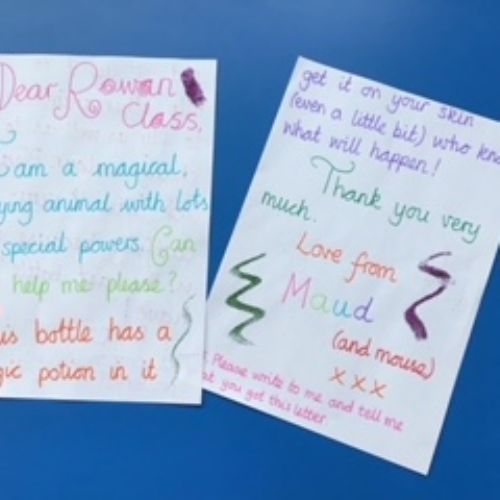 Dear Rowan
Class,
I am a magical,
ying animal with lots
special powers. Can
help me please?
is bottle has a
gic potion in it
get it on your skin
(even a little bit) who kno
what will happen!
Thank you very
much.
Love from
Maud
(and mouse)
x x x
Please write to me and tell me
at you got this letter.